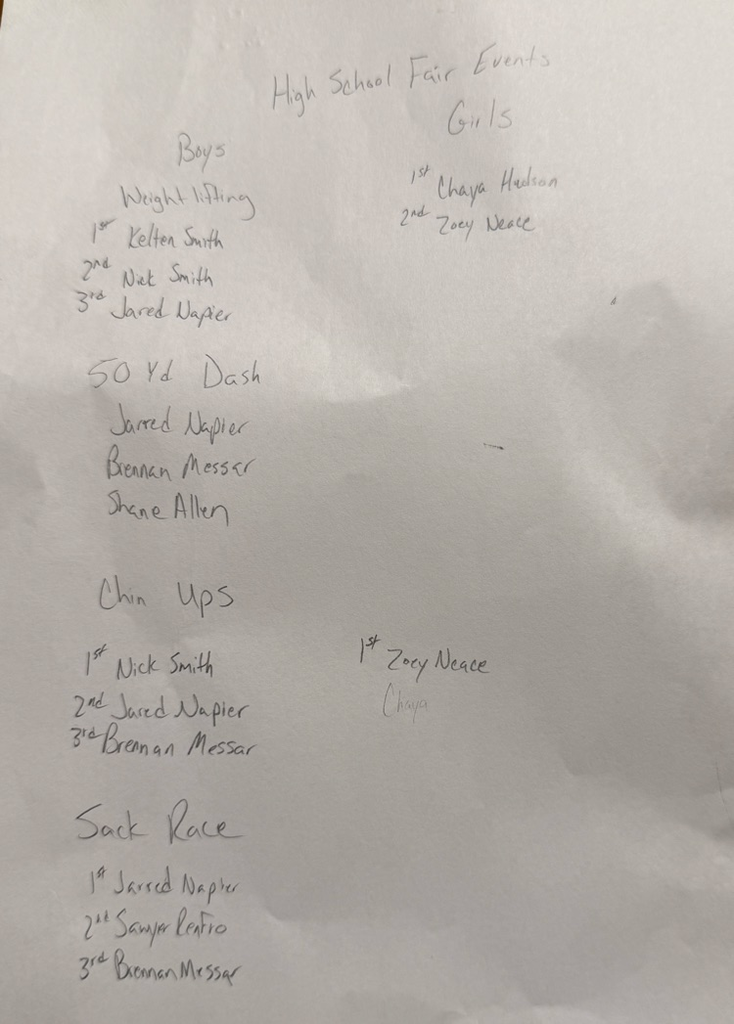 High School Fair Events
Girls
Boys
Weight lifting
1st Kelten Smith
2nd Nick Smith
3rd Jared Napier
1st Chaya Hudson
2nd Zoey Neace
50 Yd Dash
Jarred Napier
Brennan Messar
Shane Allen
Chin Ups
1st Nick Smith
2nd Jared Napier
3rd Brennan Messar
1st Zoey Neace
Chaya
Sack Race
1st Jarred Napier
2nd Sawyer Renfro
3rd Brennan Messar